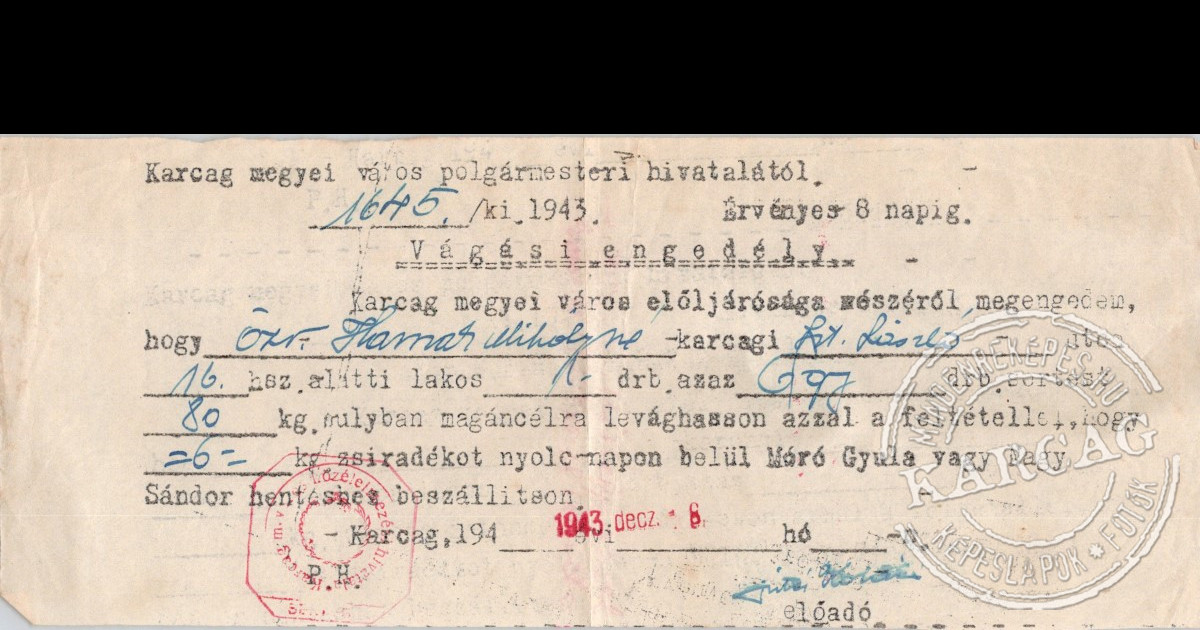 Karcag megyei város polgármesteri hivatalától.
1645. /ki.1943. Érvényes 8 napig.
Vágási engedély
Karcag megyei város előljárósága részéről megengedem,
hogy özv. Mihályné karcagi Szt. László utca
16. hsz.alatti lakos 1 - drb.azaz Egy drb.sertést
80 kg.sulyban magáncélra levághasson azzal a feltétellel,hogy
=6= kg.zsiradékot nyolc napon belül Móró Gyula vagy Nagy
Sándor hentesnek beszállitson.
- Karcag,194 évi 1943 decz. 8. hó -n.
P.H.
előadó
MINDENREKÉPES.HU
KARCAG
KÉPESLAPOK * FOTÓK